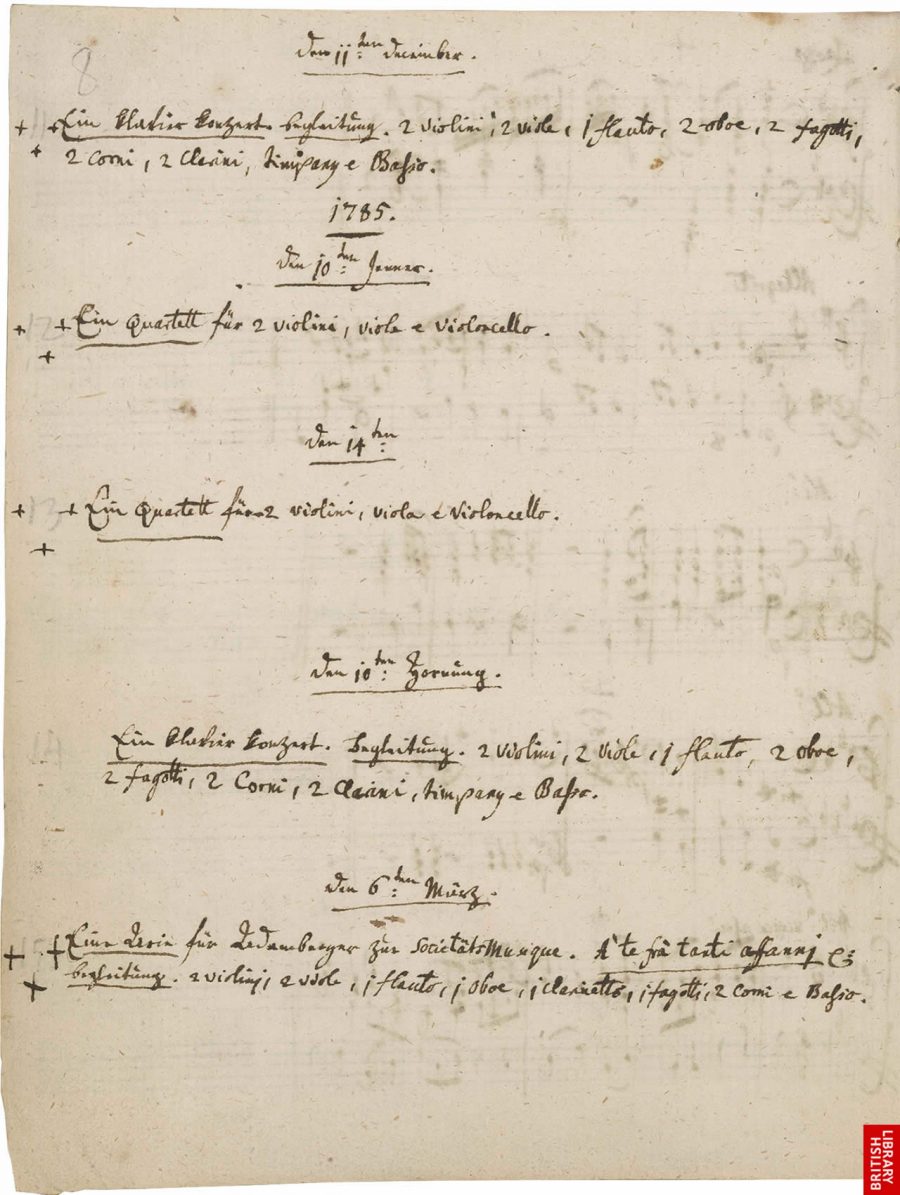 8
den 11:ten December.
Ein klavier konzert. begleitung. 2 violini, 2 viole, 1 flauto, 2 oboe, 2 fagotti,
2 Corni, 2 Clarini, timpany e Baßo.
1785.
den 10:ten Jenner.
12
Ein Quartett für 2 violini, viola e violoncello.
den 14:ten
13
Ein Quartett für 2 violini, viola e violoncello.
den 10:ten Hornung.
14
Ein klavier konzert. begleitung. 2 violini, 2 viole, 1 flauto, 2 oboe,
2 fagotti, 2 Corni, 2 Clarini, timpany e Baßo.
den 6:ten März.
Eine Aria für Adamberger zur Societäts Musique. A te frà tanti affanni &:
begleitung. 2 violinj, 2 viole, 1 flauto, 1 oboe, 1 clarinetto, 1 fagotti, 2 Corni e Baßo.
BRITISH
LIBRARY